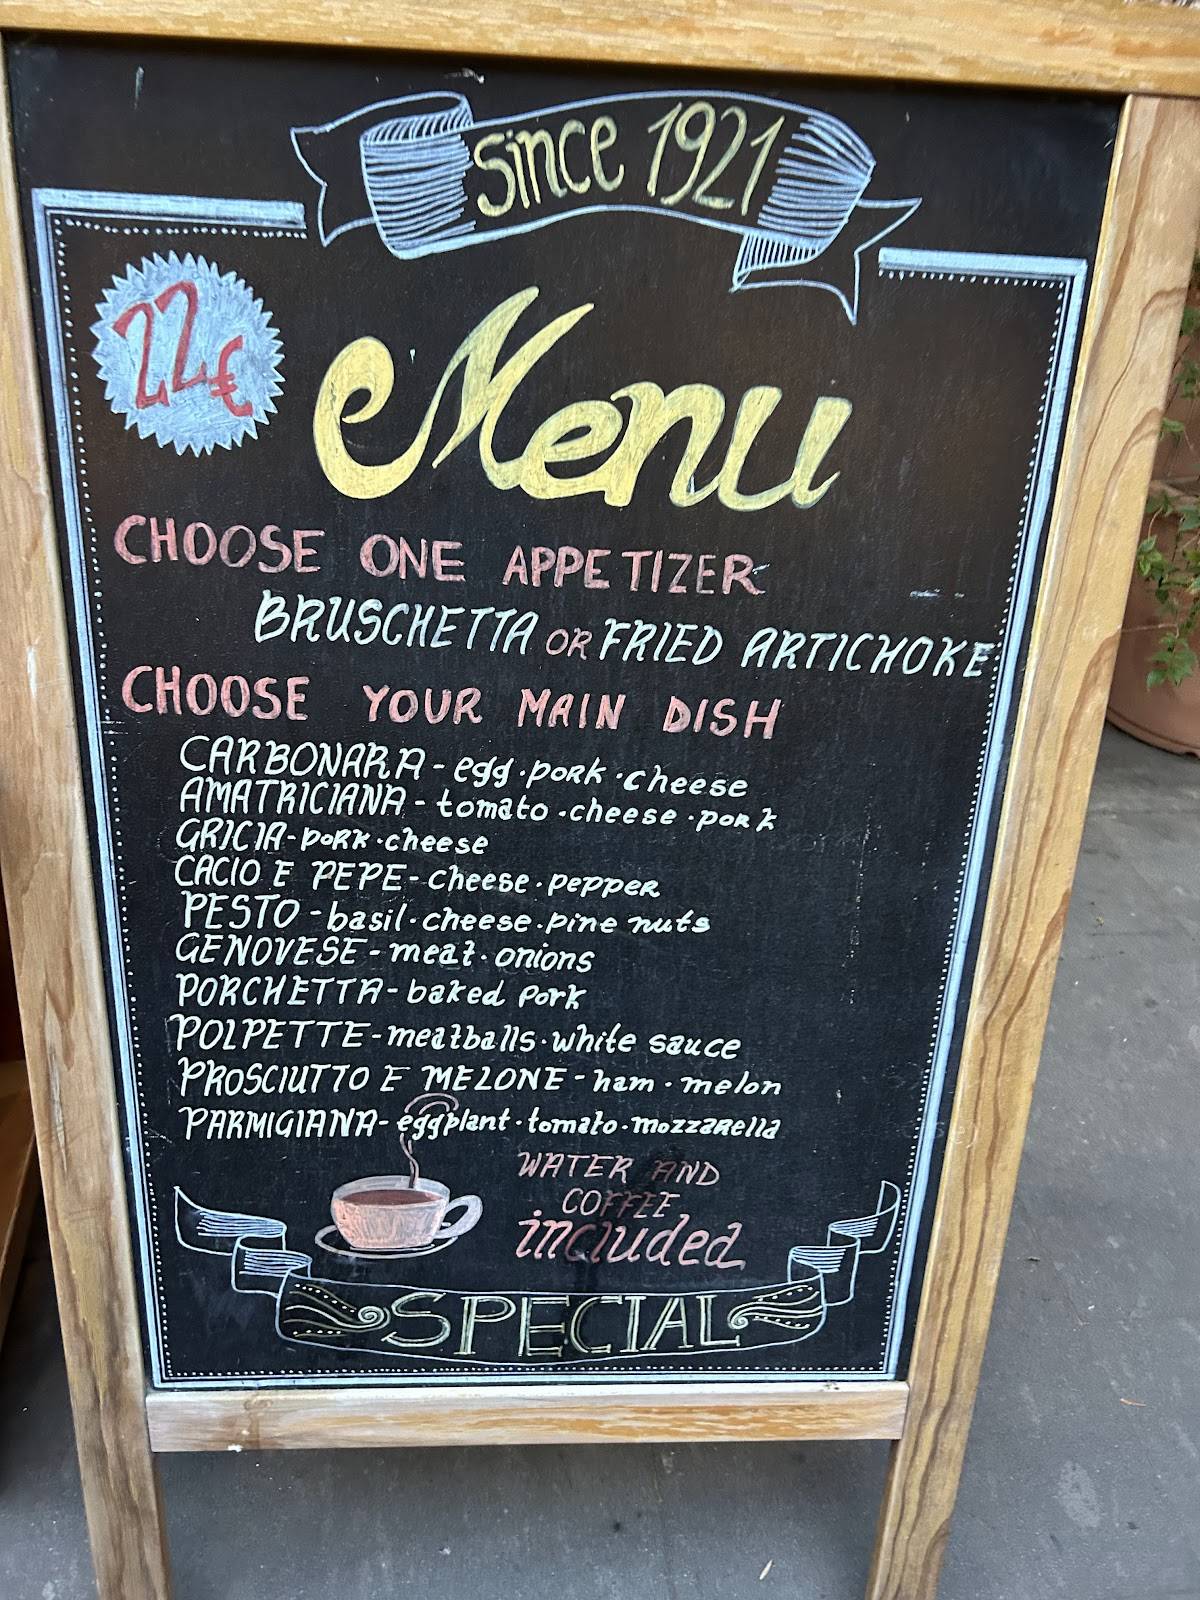 since 1921
22€
Menu
CHOOSE ONE APPETIZER
BRUSCHETTA OR FRIED ARTICHOKE
CHOOSE YOUR MAIN DISH
CARBONARA - egg · pork · cheese
AMATRICIANA - tomato · cheese · pork
GRICIA - pork · cheese
CACIO E PEPE - cheese · pepper
PESTO - basil · cheese · pine nuts
GENOVESE - meat · onions
PORCHETTA - baked pork
POLPETTE - meatballs · white sauce
PROSCIUTTO E MELONE - ham · melon
PARMIGIANA - eggplant · tomato · mozzarella
WATER AND
COFFEE
included
SPECIAL